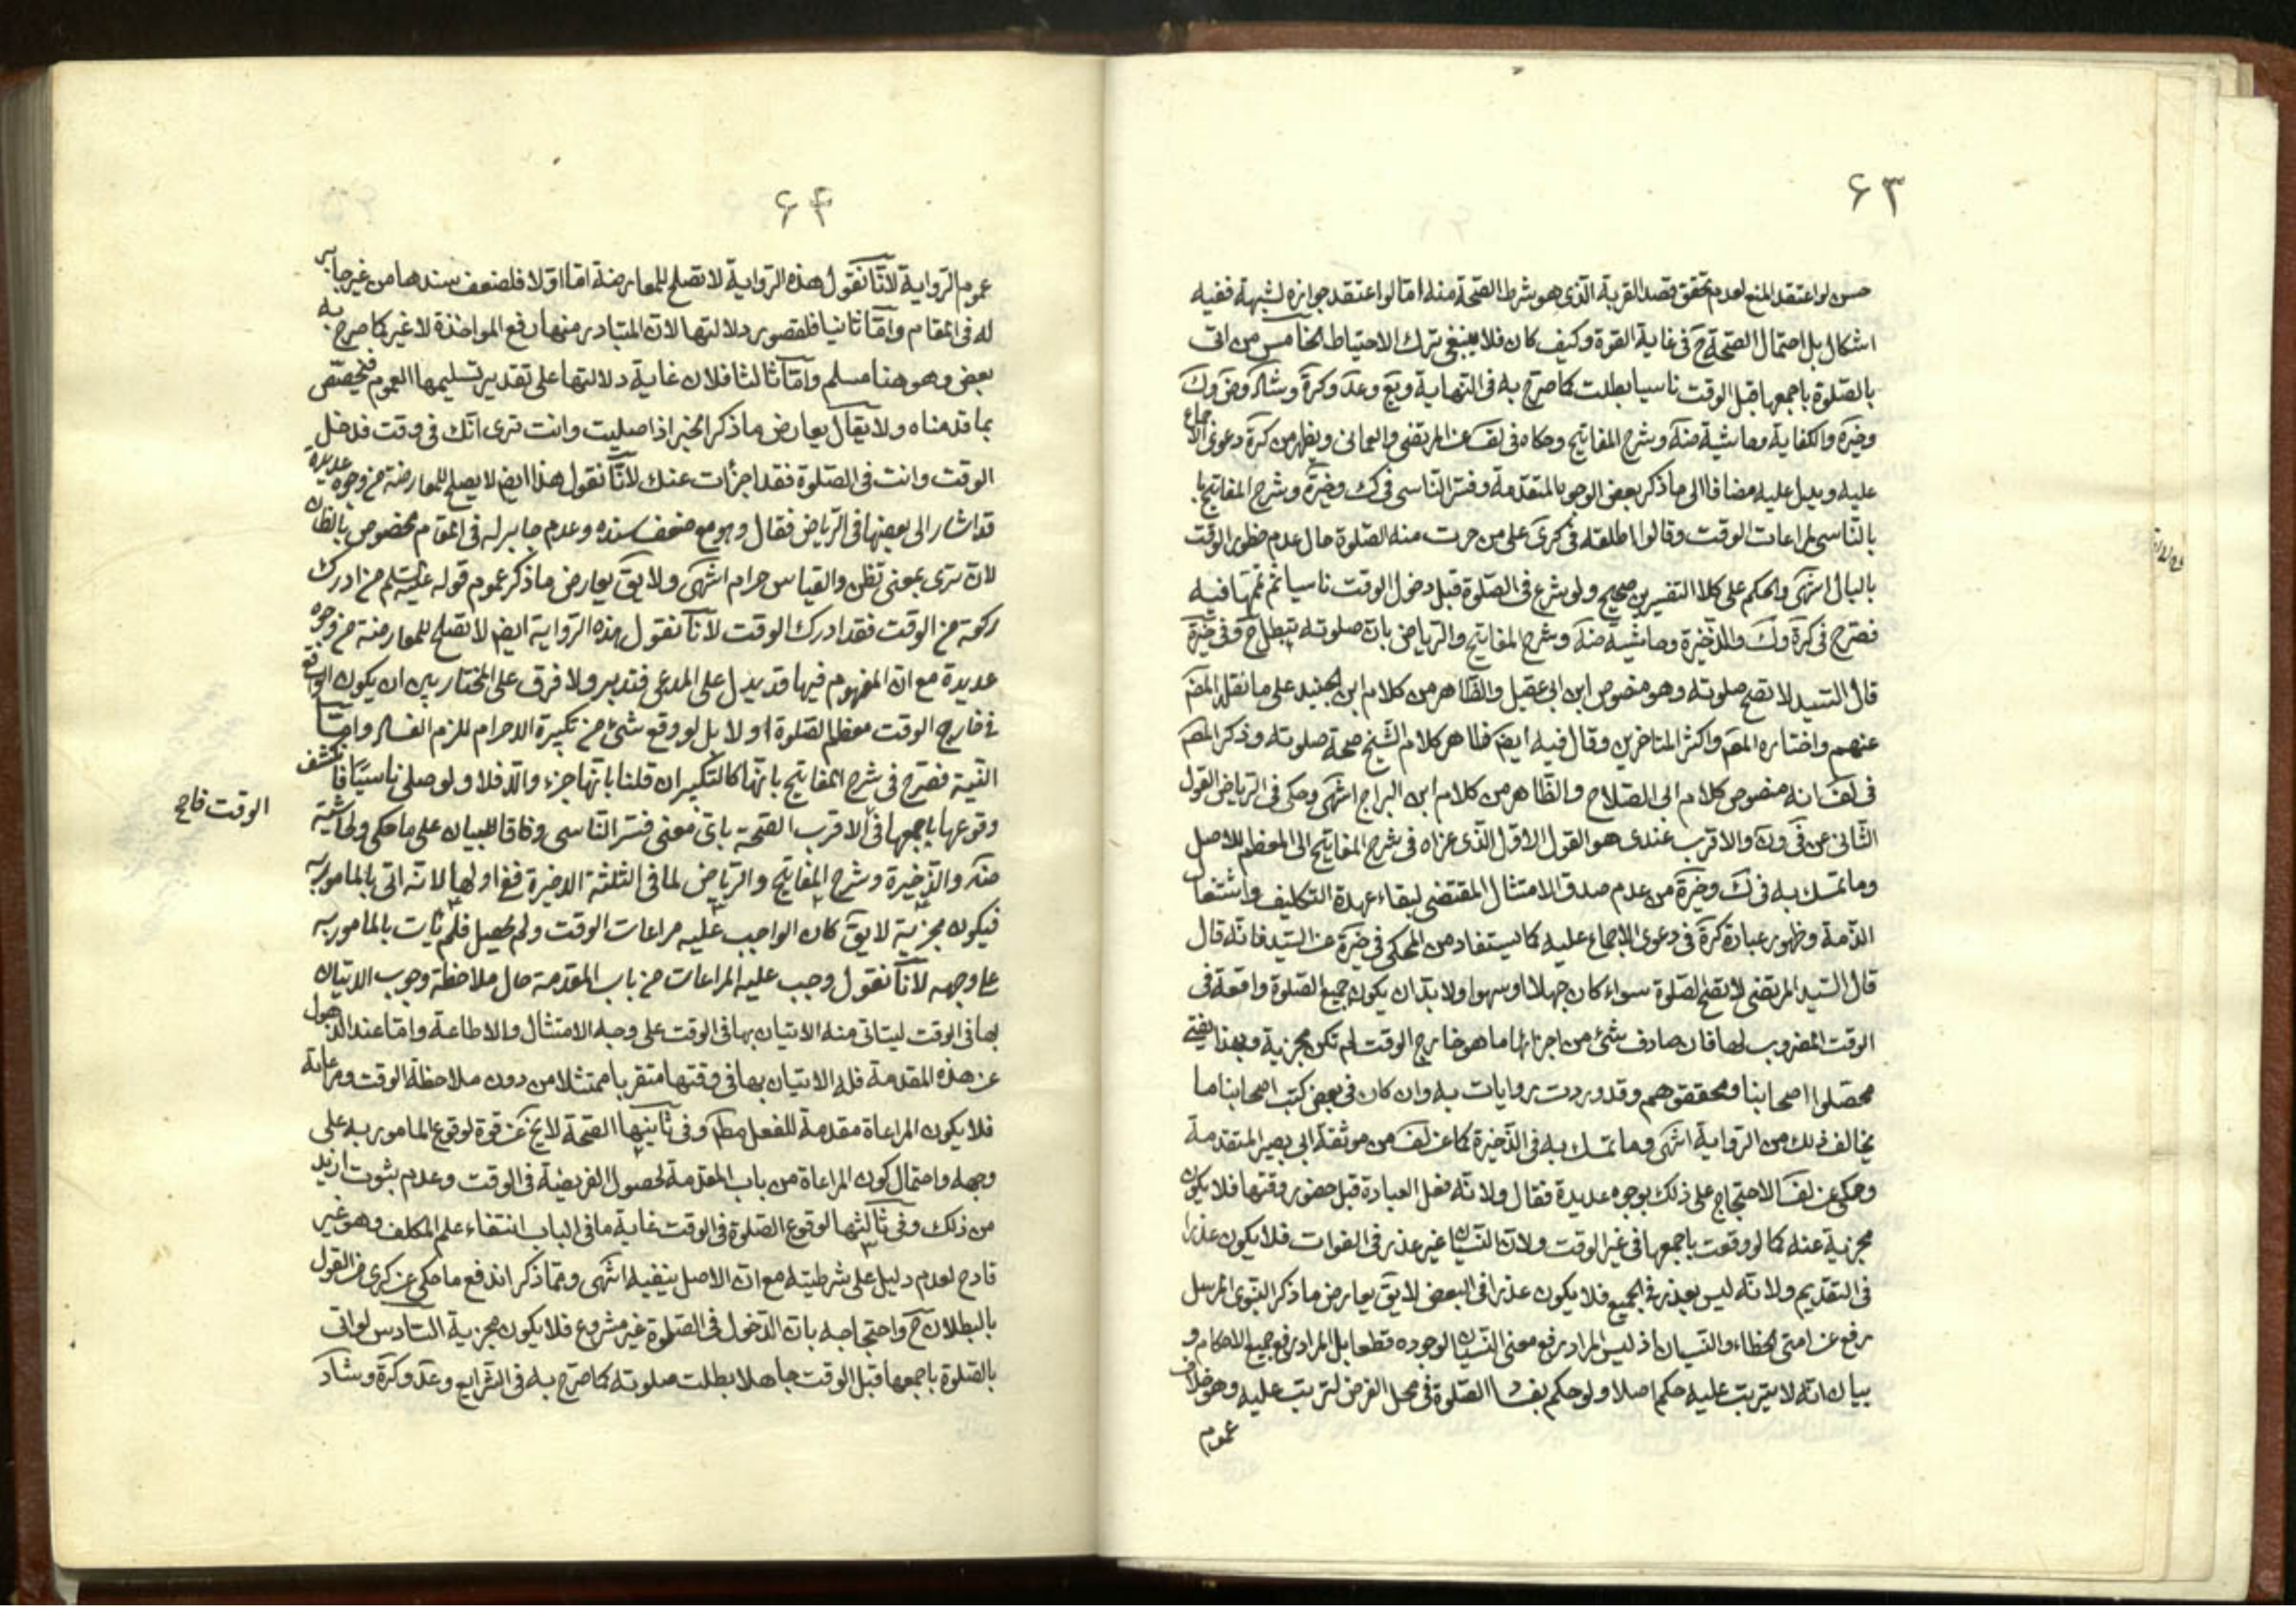 ۶۳
حسن لو اعتقد المنع لعدم تحقق قصد القربة الّذى هو شرط الصّحة منه امّا لو اعتقد جوازه لشبهة ففيه
اشكال بل احتمال الصّحة ح فى غاية القوة وكيف كان فلا ينبغى ترك الاحتياط الخامس من اتى
بالصّلوة باجمعها قبل الوقت ناسيا بطلت كما صرّح به فى النّهاية ويع وعد وكرة وشاد وضه وك
وخيرة والكفاية وحاشية منه وشرح المفاتيح وحكاه فى لف عن المرتضى والعمانى ويظهر من كرة دعوى الاجماع
عليه ويدل عليه مضافا الى ما ذكر بعض الوجوه المتقدّمة وفسّر النّاسى فى ك وخيرة وشرح المفاتيح
بالنّاسى لمراعات الوقت وقالوا اطلقه فى كرى على من جرت منه الصّلوة حال عدم خطور الوقت
بالبال انتهى والحكم على كلا التفسيرين صحيح ولو شرع فى الصّلوة قبل دخول الوقت ناسيا ثم تمّمها فيه
فصرّح فى كرة وك والذّخيرة وحاشية منه وشرح المفاتيح والرياض بان صلوته تبطل ح وفى خيرة
قال السّيد لا تصح صلوته وهو منصوص ابن ابى عقيل والظاهر من كلام ابن الجنيد على ما نقل المصّ
عنهم واختاره المصّ واكثر المتاخرين وقال فيه ايضا ظاهر كلام الشّيخ صحة صلوته وذكر المصّ
فى لف انه منصوص كلام ابى الصّلاح والظاهر من كلام ابن البراج انتهى وحكى فى الرّياض القول
الثّانى عن فى وك والاقرب عندى هو القول الاوّل الّذى عزاه فى شرح المفاتيح الى المعظم للاصل
وما تمسّك به فى ك وخيرة من عدم صدق الامتثال المقتضى لبقاء عهدة التّكليف واشتغال
الذّمة وظهور عبارة كرة فى دعوى الاجماع عليه كما يستفاد من المحكى فى خيرة عن السّيد فانّه قال
قال السّيد المرتضى لا تصح الصّلوة سواء كان جهلا او سهوا ولا بدّ ان يكون جميع الصّلوة واقعة فى
الوقت المضروب لها فان صادف شئ من اجزائها ما هو خارج الوقت لم تكن مجزية وبهذا يفتى
محصّلوا اصحابنا ومحققوهم وقد وردت روايات به وان كان فى بعض كتب اصحابنا ما
يخالف ذلك من الرّواية انتهى وما تمسّك به فى الذّخيرة كما عن لف من موثقة ابى بصير المتقدمة
وحكى عن لف الاحتجاج على ذلك بوجوه عديدة فقال ولانّه فعل العبادة قبل حضور وقتها فلا يكون
مجزية عنه كما لو وقعت باجمعها فى غير الوقت ولانّ النّسيان غير عذر فى الفوات فلا يكون عذرا
فى التقديم ولانّه ليس بعذر فى الجميع فلا يكون عذرا فى البعض لا يق يعارض ما ذكر النّبوى المرسل
رفع عن امتى الخطاء والنّسيان اذ ليس المراد رفع معنى النّسيان لوجوده قطعا بل المراد رفع جميع الاحكام و
بيان انّه لا يترتب عليه حكم اصلا ولو حكم بفساد الصّلوة فى محل الفرض لترتب عليه وهو خلاف
عموم
۶۴
عموم الرّواية لانّا نقول هذه الرّواية لا تصلح للمعارضة امّا اوّلا فلضعف سندها من غير جابر
له فى المقام وامّا ثانيا فلقصور دلالتها لان المتبادر منها رفع المواخذة لا غير كما صرح به
بعض وهو هنا مسلم وامّا ثالثا فلان غاية دلالتها على تقدير تسليمها العموم فيخصّص
بما قدمناه ولا يقال يعارض ما ذكر الخبر اذا صليت وانت ترى انّك فى وقت فدخل
الوقت وانت فى الصّلوة فقد اجزأت عنك لانّا نقول هذا ايض لا يصلح للمعارضة من وجوه عديدة
قد اشار الى بعضها فى الرّياض فقال وهو مع ضعف سنده وعدم جابر له فى المقام مخصوص بالظان
لان ترى بمعنى تظن والقياس حرام انتهى ولا يق يعارض ما ذكر عموم قوله عليه السّلم من ادرك
ركعة من الوقت فقد ادرك الوقت لانا نقول هذه الرّواية ايض لا تصلح للمعارضة من وجوه
عديدة مع ان المفهوم فيها قد يدل على المدعى فتدبر ولا فرق على المختار بين ان يكون الواقع
فى خارج الوقت معظم الصّلوة او لا بل لو وقع شئ من تكبيرة الاحرام للزم الفساد وامّا
النّية فصرّح فى شرح المفاتيح بانّها كالتّكبير ان قلنا بانّها جزء والّا فلا ولو صلى ناسيا فانكشف
وقوعها باجمعها فى الوقت فالاقرب الصّحة باىّ معنى فسّر النّاسى وفاقا للبيان على ما حكى ولحاشية
منه والذّخيرة وشرح المفاتيح والرّياض لما فى الثلثة الاخيرة ففى اولها لانّه اتى بالمامور به
فيكون مجزية لا يق كان الواجب عليه مراعات الوقت ولم يحصل فلم يأت بالمامور به
على وجهه لانّا نقول وجب عليه المراعات من باب المقدمة حال ملاحظة وجوب الاتيان
بها فى الوقت ليتاتى منه الاتيان بها فى الوقت على وجه الامتثال والاطاعة وامّا عند الذّهول
عن هذه المقدمة فله الاتيان بها فى وقتها متقربا ممتثلا من دون ملاحظة الوقت ومراعاته
فلا يكون المراعاة مقدمة للفعل مطم وفى ثانيها الصّحة لا يخ عن قوة لوقوع المامور به على
وجهه واحتمال كون المراعاة من باب المقدمة لحصول الفريضة فى الوقت وعدم ثبوت ازيد
من ذلك وفى ثالثها لوقوع الصّلوة فى الوقت غاية ما فى الباب انتفاء علم المكلف وهو غير
قادح لعدم دليل على شرطيته مع ان الاصل ينفيه انتهى وممّا ذكر اندفع ما حكى عن كرى من القول
بالبطلان ح واحتجاجه بان الدّخول فى الصّلوة غير مشروع فلا يكون مجزية السّادس لو اتى
بالصّلوة باجمعها قبل الوقت جاهلا بطلت صلوته كما صرّح به فى الشّرايع وعد وكرة وشاد